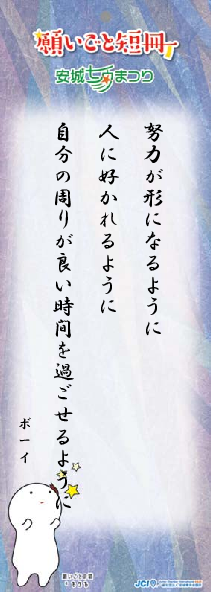 願いごと短冊
安城七夕まつり
努力が形になるように
人に好かれるように
自分の周りが良い時间を過ごせるように
ボーイ
JCI